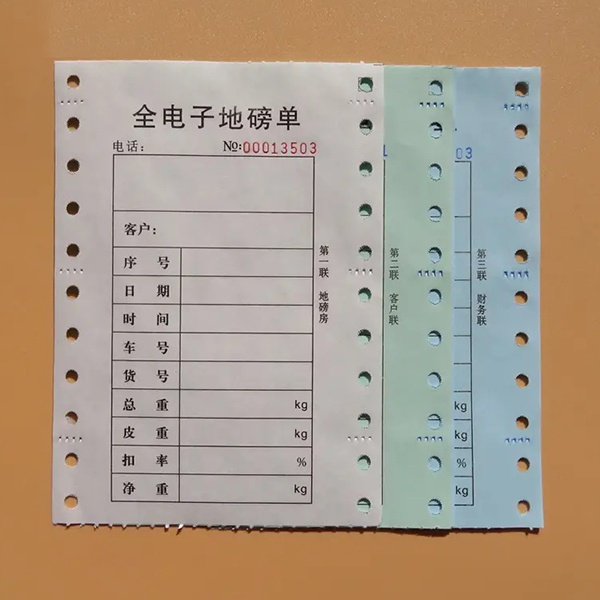 全电子地磅单
电话： №:00013503
客户：
序 号
日 期
时 间
车 号
货 号
总 重 kg
皮 重 kg
扣 率 %
净 重 kg
第一联 地磅房
第二联 客户联
03
第三联 财务联
kg
kg
%
kg